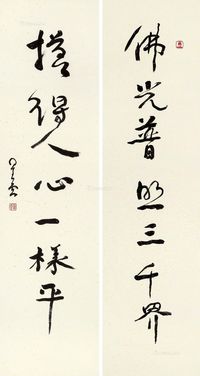 佛光普照三千界
得人心一樣平
星雲